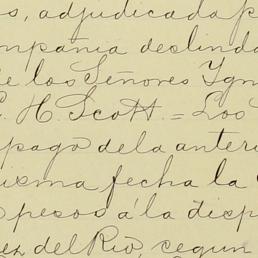 s, adjudicada p
mpañia deslinda
e los Señores Ygn
C. H. Scott. = Los
pago de la anteri
isma fecha la
pesos á la disp
ez del Rio, segun